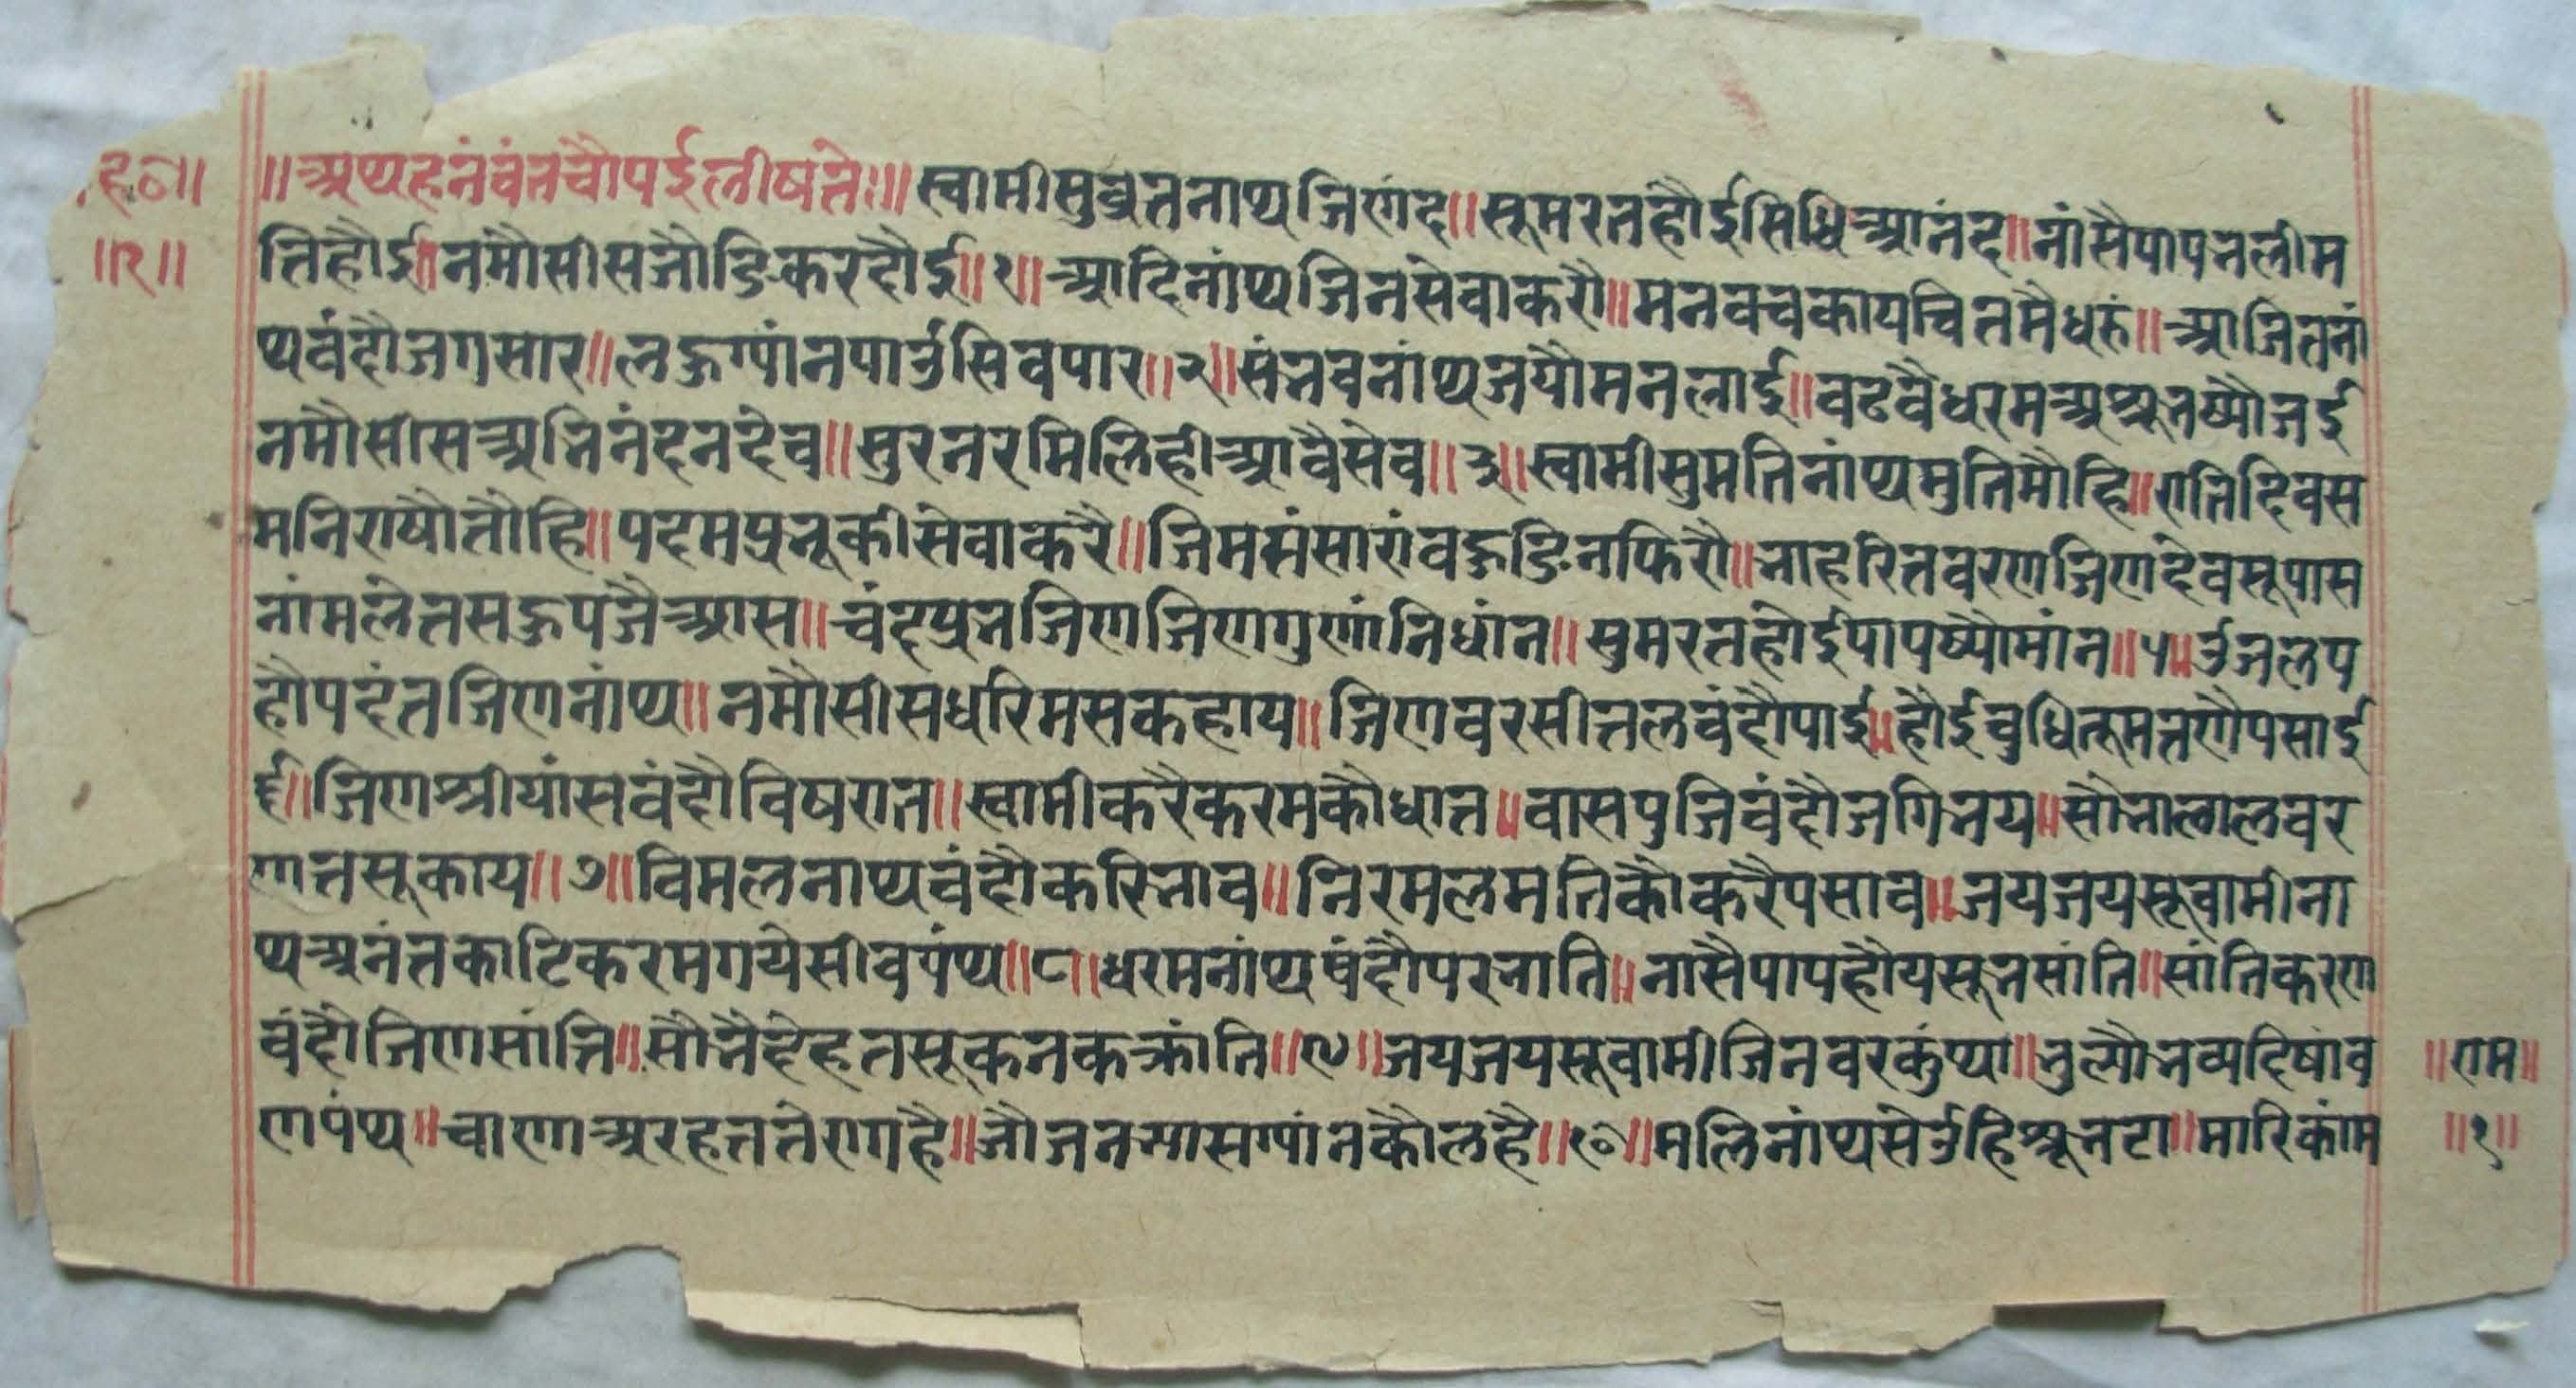 ह०॥ ॥अथहनंवंतचौपईलीषते:॥ स्वामीसुव्रतनाथजिणंद॥सूमरतहौईसिधिआनंद॥नांसैपापनलीम
॥र॥ तिहौई॥नमौसीसजौडिकरदौई॥१॥आदिनांथजिनसेवाकरौ॥मनवचकायचितमैधरुं॥आजितनां
थवंदौजगसार॥लऊग्यांनपाउंसिवपार॥२॥संभवनांथजयौमनलाई॥वढवैधरमअश्रूभष्यौजई
नमौसीसअभिनंदनदेव॥सुरनरमिलिहीआवैसेव॥३॥स्वामीसुमतिनांथमुतिमौहि॥रातिदिवस
मनिराषौतौहि॥पदमप्रभूकीसेवाकरै॥जिमसंसारांवऊडिनफिरौ॥भाहरितवरणजिणदेवसूपास
नांमलेतसऊपजैआस॥चंद्रप्रभजिणजिणगुणांनिधांन॥सुमरतहौईपापष्यौमांन॥५॥उजलप
हौपदंतजिणनांथ॥नमौसीसधरिमसकहाय॥जिणवरसीतलवंदौपाई॥हौईबुधितूमतणौपसाई
६॥जिणश्रीयांसवंदौविषरात॥स्वामीकरैकरमकौधात॥वासपुजिवंदौजगिभय॥सौभालालवर
णतसूकाय॥७॥विमलनाथवंदौकरिभाव॥निरमलमतिकौकरैपसाव॥जयजयसूवामीना
थअनंतकाटिकरमगयेसीवपंथ॥८॥धरमनांथवंदौपरभाति॥नासैपापहौयसूभसांति॥सांतिकरण
वंदौजिणसांति॥सौभैदेहतसूकनकक्रांति॥९॥जयजयसूवामीजिनवरकुंथा॥भुल्यौभव्यदिषांव ॥राम॥
णपंथ॥चारणअरहततेरागहै॥जौजनभासग्यांनकौलहै॥१०॥मलिनांथसेउंहिश्रूभटा॥मारिकांम ॥१॥